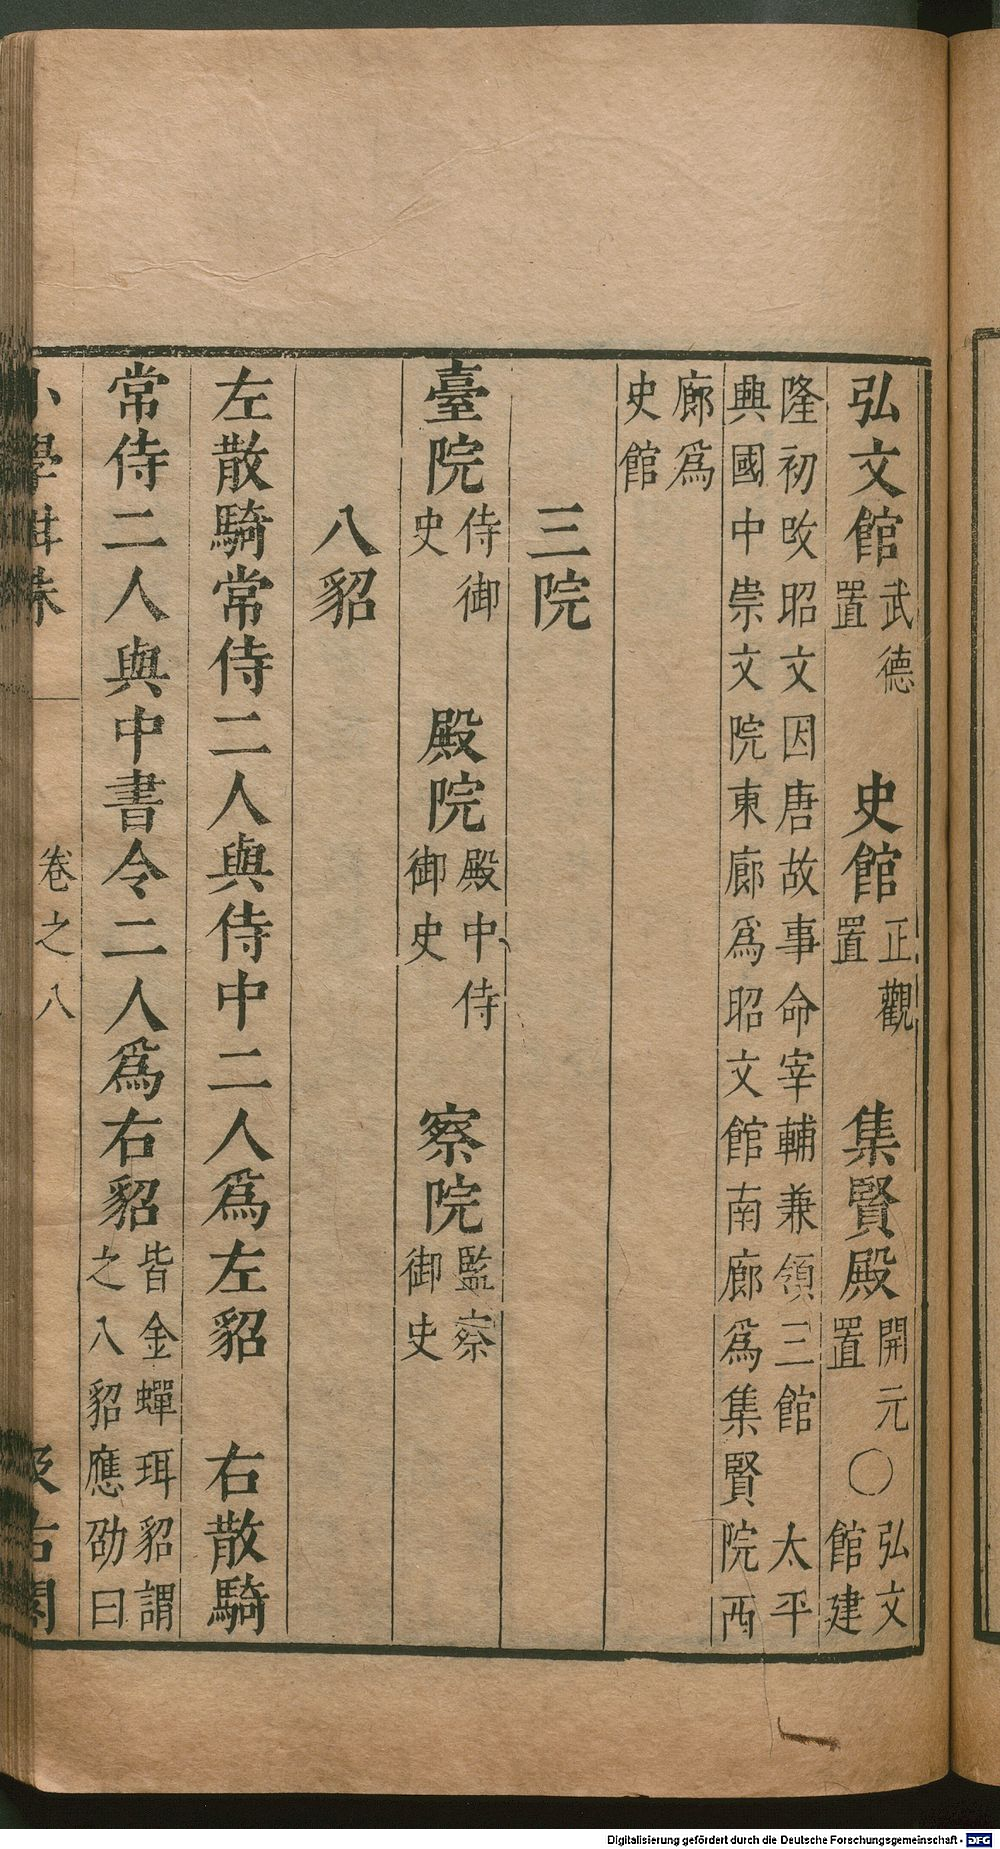 弘文館武德置　史館正觀置　集賢殿開元置〇弘文館建
隆初改昭文因唐故事命宰輔兼領三館　太平
興國中崇文院東廊爲昭文館南廊爲集賢院西
廊爲
史館
三院
臺院侍御史　殿院殿中侍御史　察院監察御史
八貂
左散騎常侍二人與侍中二人爲左貂　右散騎
常侍二人與中書令二人爲右貂皆金蟬珥貂謂之八貂應劭曰
小學紺珠　卷之八　汲古閣
Digitalisierung gefördert durch die Deutsche Forschungsgemeinschaft - DFG